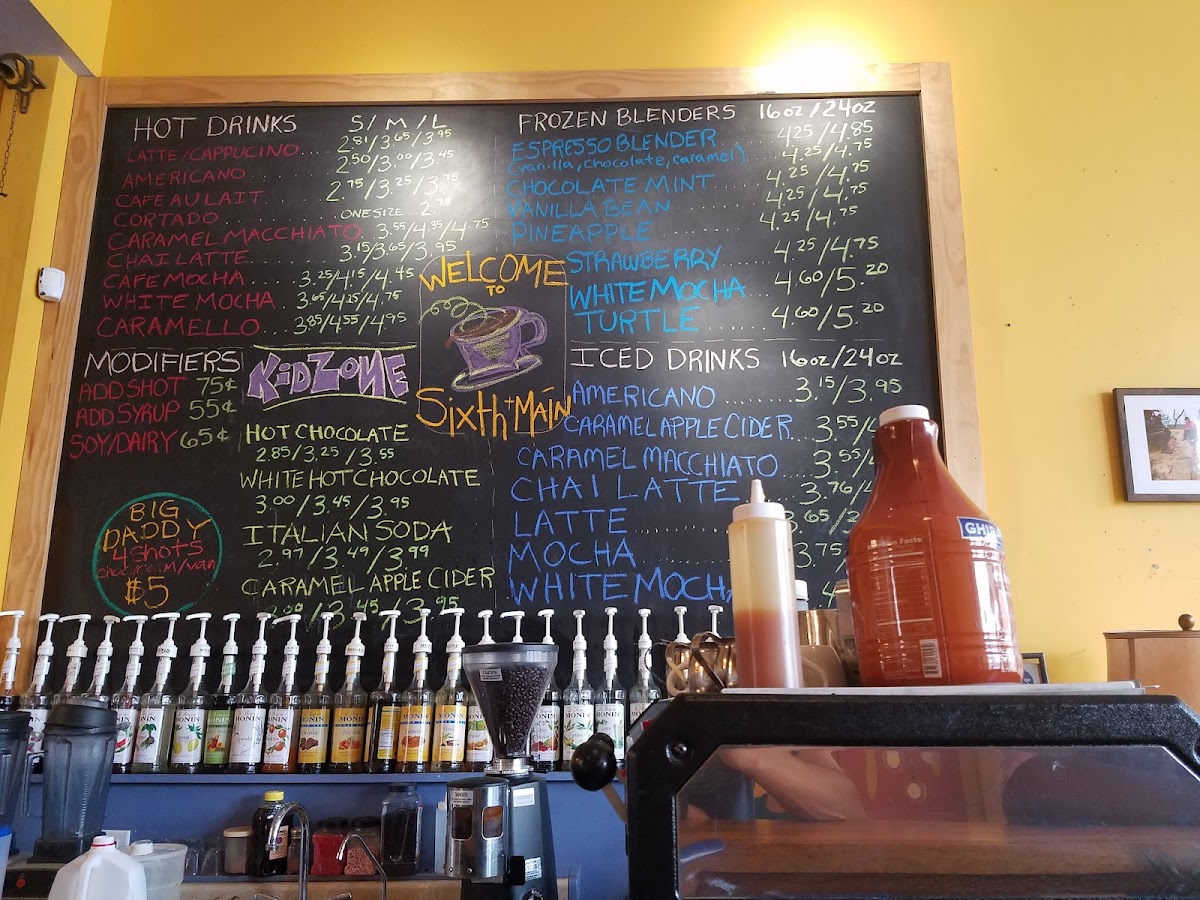 HOT DRINKS S/M/L
LATTE/CAPPUCINO.... 2.81/3.65/3.95
AMERICANO 2.50/3.00/3.45
CAFE AU LAIT..... 2.75/3.25/3.75
CORTADO ONE SIZE...2.75
CARAMEL MACCHIATO. 3.55/4.35/4.75
CHAI LATTE....... 3.15/3.65/3.95
CAFE MOCHA.... 3.25/4.15/4.45
WHITE MOCHA. 3.65/4.25/4.75
CARAMELLO... 3.85/4.55/4.95
MODIFIERS
ADD SHOT 75¢
ADD SYRUP 55¢
SOY/DAIRY 65¢
BIG
DADDY
4 Shots
$5
KIDZONE
HOT CHOCOLATE
2.85/3.25/3.55
WHITE HOT CHOCOLATE
3.00/3.45/3.95
ITALIAN SODA
2.97/3.49/3.99
CARAMEL APPLE CIDER
WELCOME
TO
Sixth+Main
FROZEN BLENDERS 16oz/24oz
ESPRESSO BLENDER 4.25/4.85
(vanilla, chocolate, caramel) 4.25/4.75
CHOCOLATE MINT...... 4.25/4.75
VANILLA BEAN....... 4.25/4.75
PINEAPPLE.......... 4.25/4.75
STRAWBERRY....... 4.25/4.75
WHITE MOCHA... 4.60/5.20
TURTLE....... 4.60/5.20
ICED DRINKS 16oz/24oz
AMERICANO........ 3.15/3.95
CARAMEL APPLE CIDER... 3.55/
CARAMEL MACCHIATO... 3.55/
CHAI LATTE..... 3.76/
LATTE
MOCHA 3.75
WHITE MOCHA
MONIN
MONIN
MONIN
MONIN
MONIN
MONIN
MONIN
MONIN